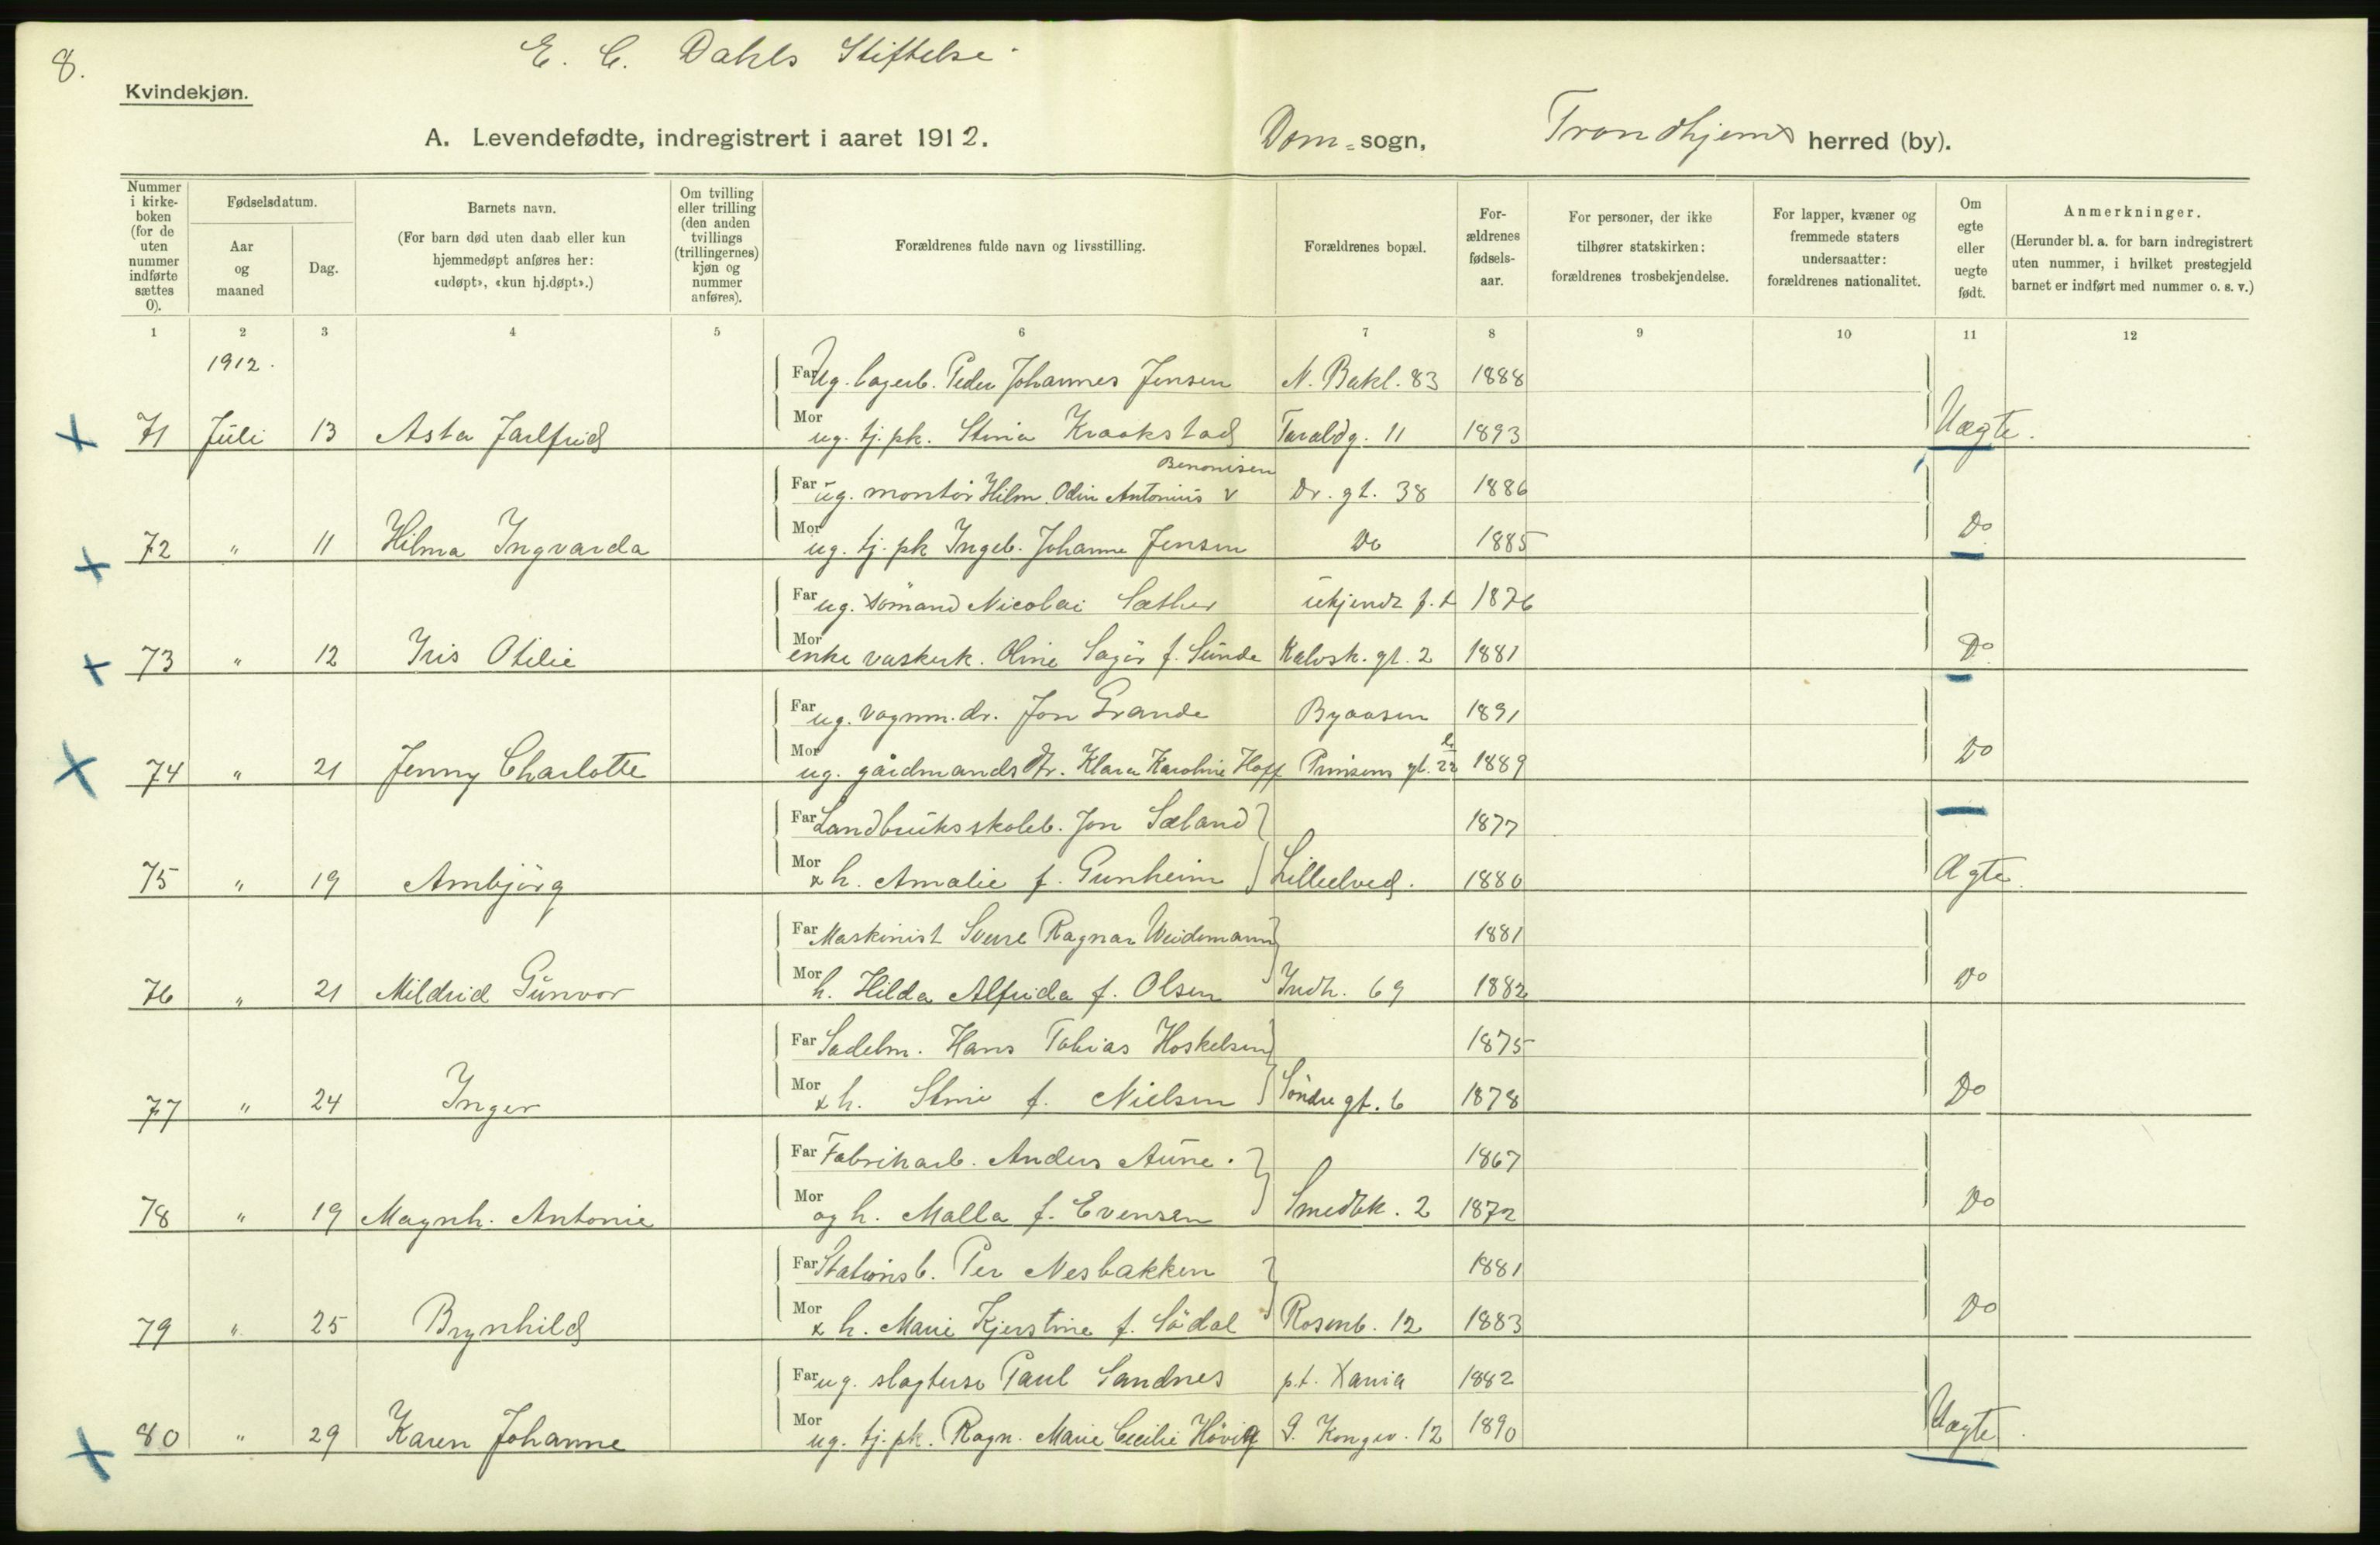 8.
E. C. Dahls Stiftelse
Kvindekjøn.
A. Levendefødte, indregistrert i aaret 1912.
Dom= sogn,
Trondhjems herred (by).
Nummer i kirke-boken (for de uten nummer indførte sættes 0).
Fødselsdatum.
Aar og maaned
Dag.
Barnets navn.
(For barn død uten daab eller kun hjemmedøpt anføres her: «udøpt», «kun hj.døpt».)
Om tvilling eller trilling (den anden tvillings (trillingernes) kjøn og nummer anføres).
Forældrenes fulde navn og livsstilling.
Forældrenes bopæl.
For-ældrenes fødsels-aar.
For personer, der ikke tilhører statskirken: forældrenes trosbekjendelse.
For lapper, kvæner og fremmede staters undersaatter: forældrenes nationalitet.
Om egte eller uegte født.
Anmerkninger.
(Herunder bl. a. for barn indregistrert uten nummer, i hvilket prestegjeld barnet er indført med nummer o. s. v.)
1 2 3 4 5 6 7 8 9 10 11 12
1912.
Far Ug. lagerb. Peder Johannes Jensen N. Bakl. 83 1888
71 Juli 13 Asta Jarlfrid Mor ug. tj. pk. Stina Kraakstad Taraldg. 11 1893 Uægte.
Benonisen
Far ug. montör Hilm. Odin Antonius v Dr. gt. 38 1886
72 " 11 Hilma Ingvarda Mor ug. tj. pk Ingeb. Johanne Jensen Do 1885 Do
Far ug. sömand Nicolai Sæther ukjendt f. t 1876
73 " 12 Iris Otilie Mor enke vaskerk. Oline Sagör f. Sunde Kalvsk. gt. 2 1881 Do
Far ug. vognm. dr. Jon Grande Byaasen 1891
74 " 21 Jenny Charlotte Mor ug. gårdmands dtr. Klara Karoline Hoff Prinsens gt. 22 1889 Do
Far Landbruksskoleb. Jon Sæland 1877
75 " 19 Arnbjörg Mor & h. Amalie f. Gunheim Lilleelved. 1880 Ægte.
Far Maskinist Sverre Ragnar Weidemann 1881
76 " 21 Mildrid Gunvor Mor h. Hilda Alfrida f. Olsen Indh. 69 1882 Do
Far Sadelm. Hans Tobias Hoskelsen 1875
77 " 24 Inger Mor & h. Stine f. Nielsen Söndre gt. 6 1878 Do
Far Fabrikarb. Anders Aune. 1867
78 " 19 Magnh. Antonie Mor og h. Malla f. Evensen Smedbk. 2 1872 Do
Far Stationsb. Per Nesbakken 1881
79 " 25 Brynhild Mor & h. Marie Kjerstine f. Södal Rosenb. 12 1883 Do
Far ug. slagtersv Paul Sandnes p.t. Xania 1882
80 " 29 Karen Johanne Mor ug. tj. pk. Ragn. Marie Cecilie Hövig G. Kongev. 12 1890 Uægte.